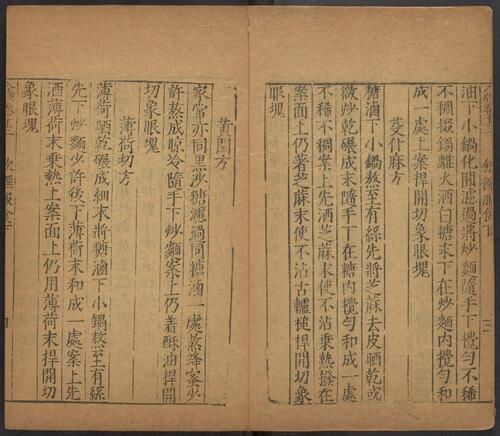 油下小鍋化開濾過將炒麵隨手下攪勻不稀
不稠掇鍋離火洒白糖末下在炒麵內攪勻和
成一處上案捍開切象眼塊
芟什麻方
糖滷下小鍋熬至有絲先將芝蔴去皮晒乾或
微炒乾碾成末隨手下在糖內攪勻和成一處
不稀不稠案上先洒芝蔴末使不沾乗熱撥在
案面上仍着芝蔴末使不沾古轤槌捍開切象
眼塊
黃閏方
家常亦同黑沙糖濾過同糖滷一處熬蜂蜜少
許熬成晾冷隨手下炒麵案上仍着酥油捍開
切象眼塊
薄荷切方
薄荷晒乾碾成細末將糖滷下小鍋熬至有絲
先下炒麵少許後下薄荷末和成一處案上先
洒薄荷末乗熱上案面上仍用薄荷末捍開切
象眼塊